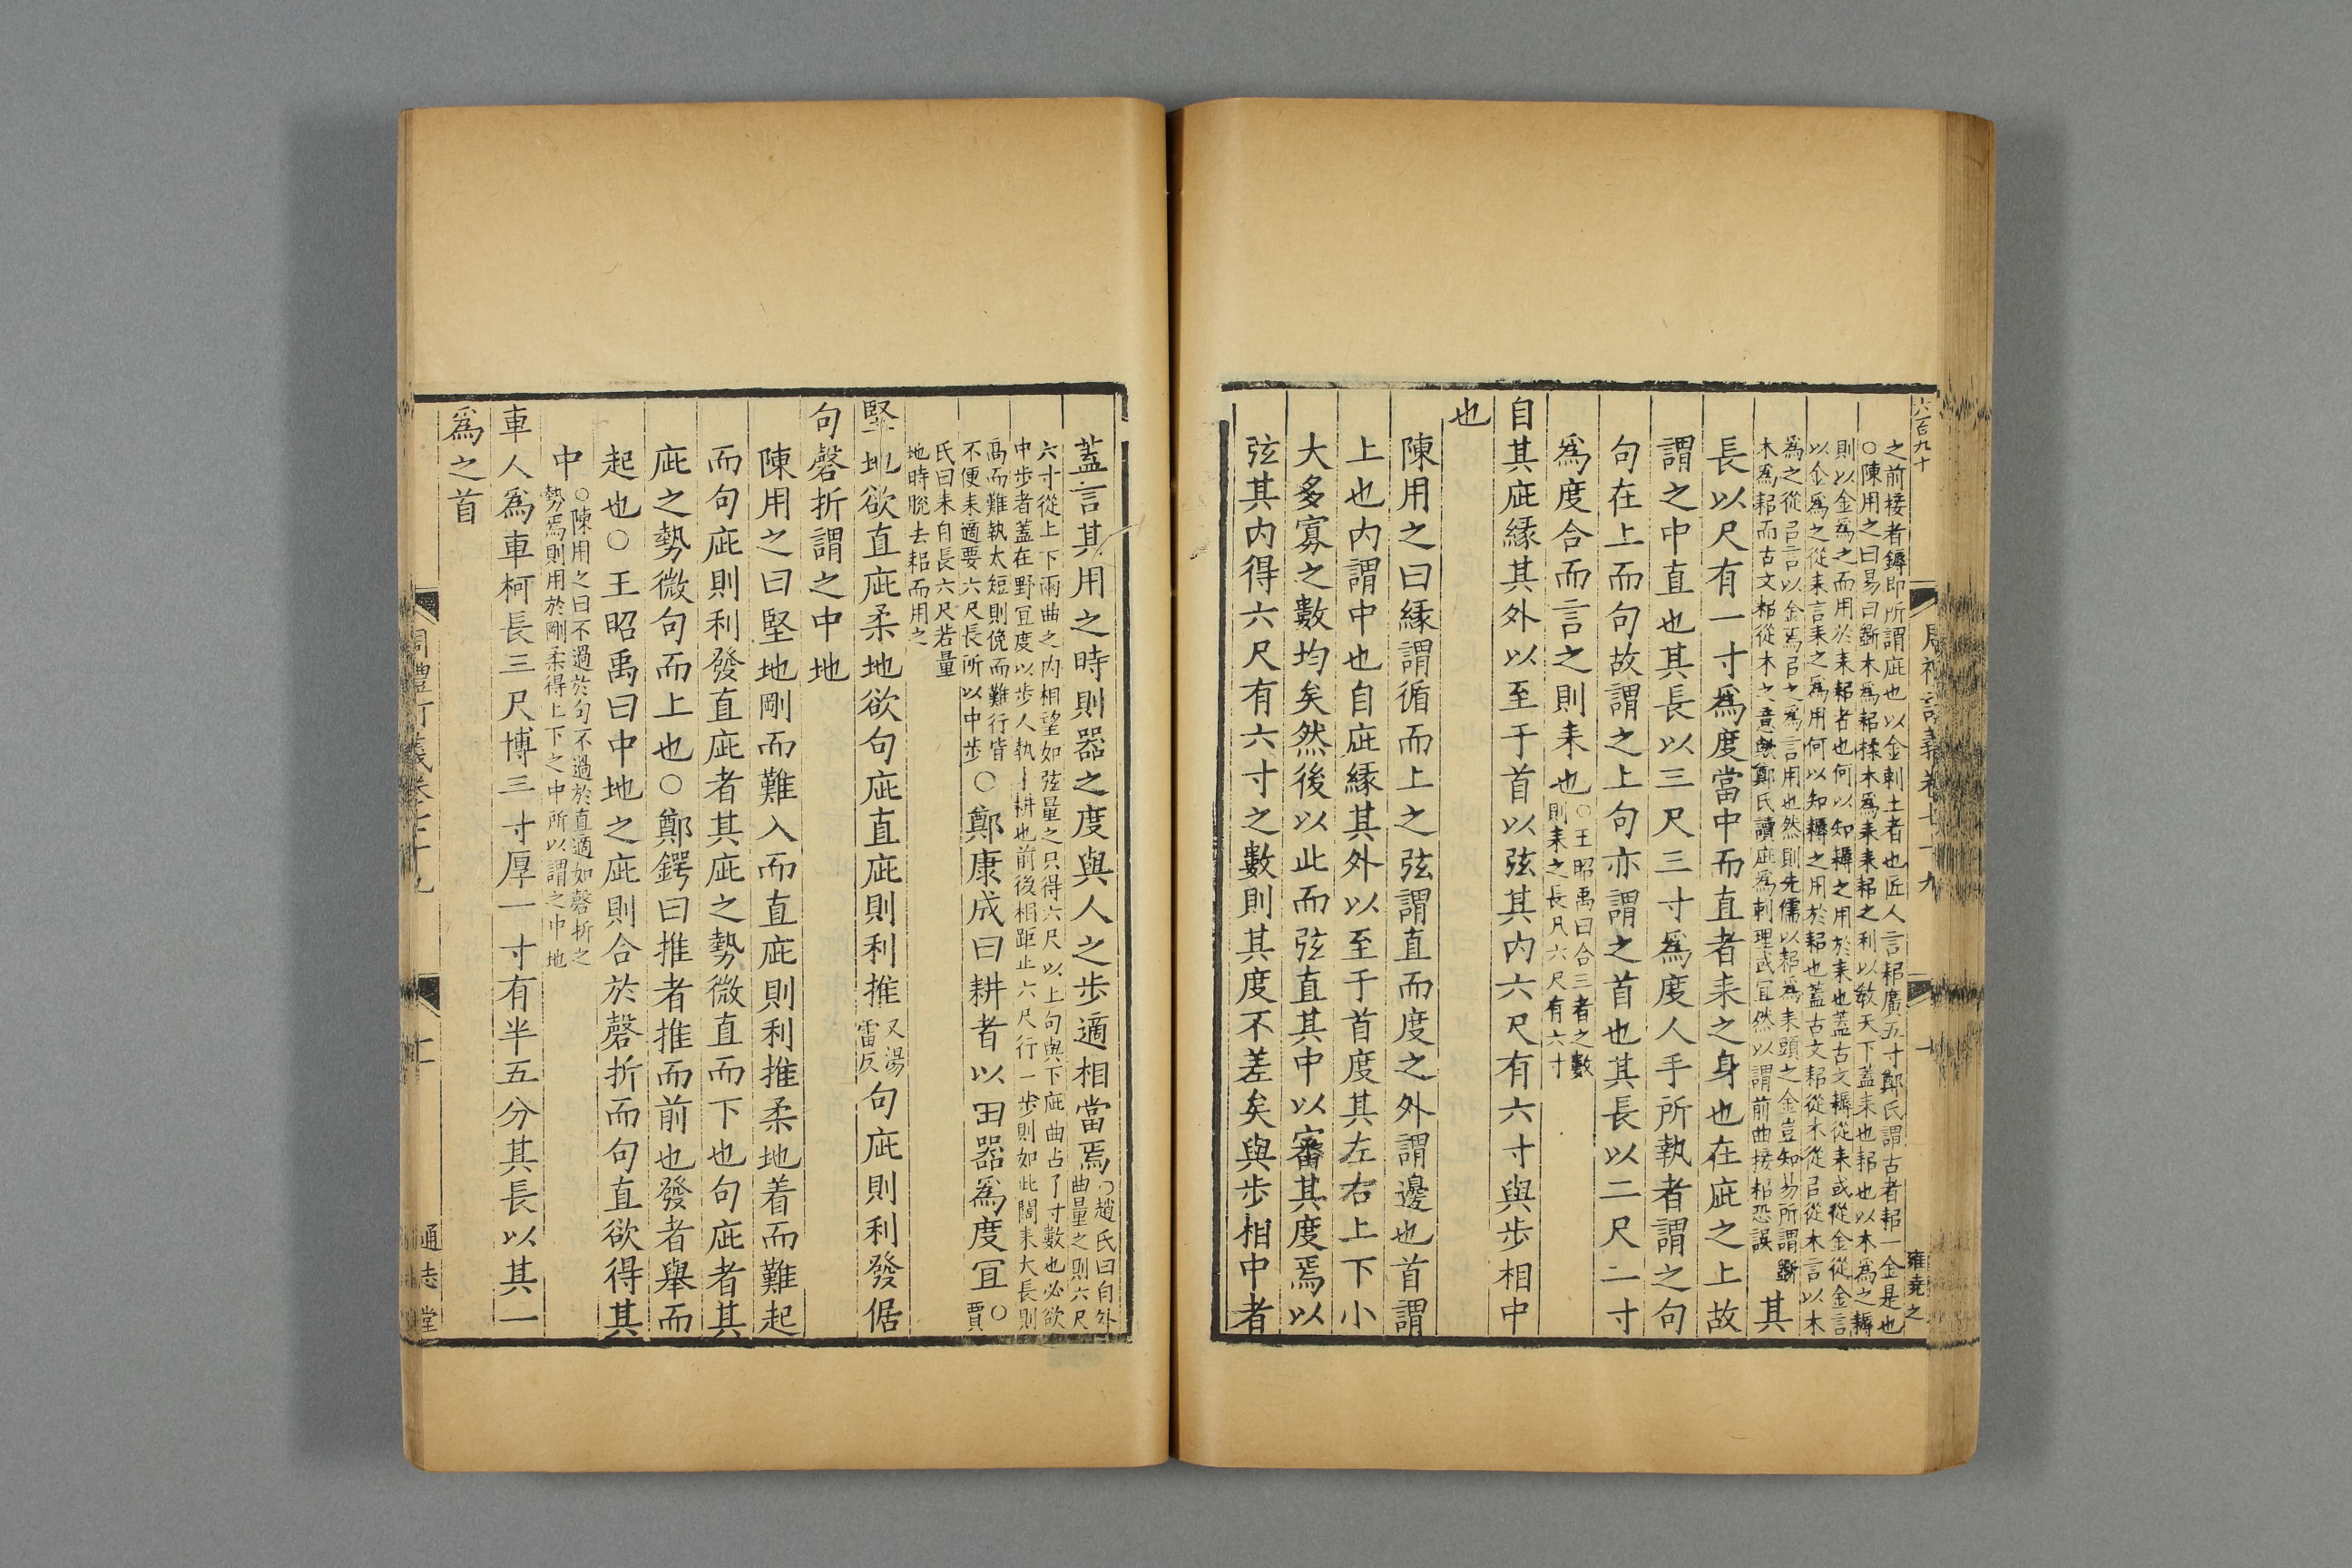 六百九十
周禮訂義卷七十九
十
雍堯之
之前接者鎒即所謂庛也以金刺土者也匠人言耜廣五寸鄭氏謂古者耜一金是也
○陳用之曰易曰斲木爲耜揉木爲耒耒耜之利以敎天下蓋耒也耜也以木爲之耨
則以金爲之而用於耒耜者也何以知耨之用於耒也蓋古文耨從耒或從金從金言
以金爲之從耒言耒之爲用何以知耨之用於耜也蓋古文耜從木從㠯從木言以木
爲之從㠯言以金焉㠯之爲言用也然則先儒以耜爲耒頭之金豈知易所謂斲
木爲耜而古文耜從木之意歟鄭氏讀庛爲刺理或冝然以謂前曲接耜恐誤
其
長以尺有一寸爲度當中而直者耒之身也在庛之上故
謂之中直也其長以三尺三寸爲度人手所執者謂之句
句在上而句故謂之上句亦謂之首也其長以二尺二寸
爲度合而言之則耒也
○王昭禹曰合三者之數
則耒之長尺六尺有六寸
自其庛緣其外以至于首以弦其内六尺有六寸與步相中
也
陳用之曰緣謂循而上之弦謂直而度之外謂邊也首謂
上也内謂中也自庛緣其外以至于首度其左右上下小
大多寡之數均矣然後以此而弦直其中以審其度焉以
弦其内得六尺有六寸之數則其度不差矣與步相中者
蓋言其用之時則器之度與人之步適相當焉
○趙氏曰自外
曲量之則六尺
六寸從上下兩曲之内相望如弦量之只得六尺以上句與下庛曲占了寸數也必欲
中步者蓋在野冝度以步人執于耕也前後相距止六尺行一步則如此闊耒大長則
高而難執太短則俛而難行皆
不便耒適要六尺長所以中步
○鄭康成曰耕者以田器爲度冝
○
賈
氏曰耒自長六尺若量
地時脫去耜而用之
堅地欲直庛柔地欲句庛直庛則利推
又湯
雷反
句庛則利發倨
句磬折謂之中地
陳用之曰堅地剛而難入而直庛則利推柔地着而難起
而句庛則利發直庛者其庛之勢微直而下也句庛者其
庛之勢微句而上也○鄭鍔曰推者推而前也發者舉而
起也○王昭禹曰中地之庛則合於磬折而句直欲得其
中
○陳用之曰不過於句不過於直適如磬折之
勢焉則用於剛柔得上下之中所以謂之中地
車人爲車柯長三尺博三寸厚一寸有半五分其長以其一
爲之首
周禮訂義卷七十九
通志堂